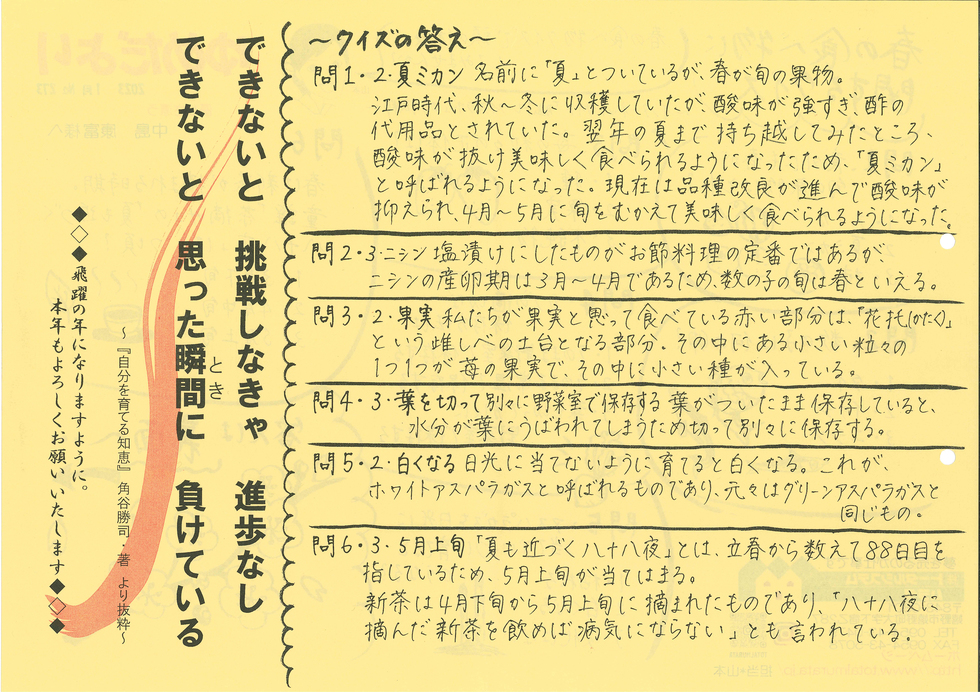 〜クイズの答え〜
問1・2・夏ミカン 名前に「夏」とついているが、春が旬の果物。
江戸時代、秋〜冬に収穫していたが、酸味が強すぎ、酢の
代用品とされていた。翌年の夏まで持ち越してみたところ、
酸味が抜け美味しく食べられるようになったため、「夏ミカン」
と呼ばれるようになった。現在は品種改良が進んで酸味が
抑えられ、4月〜5月に旬をむかえて美味しく食べられるようになった。
問2・3・ニシン 塩漬けにしたものがお節料理の定番ではあるが、
ニシンの産卵期は3月〜4月であるため、数の子の旬は春といえる。
問3・2・果実 私たちが果実と思って食べている赤い部分は、「花托(かたく)」
という雌しべの土台となる部分。その中にある小さい粒々の
1つ1つが苺の果実で、その中に小さい種が入っている。
問4・3・葉を切って別々に野菜室で保存する 葉がついたまま保存していると、
水分が葉にうばわれてしまうため切って別々に保存する。
問5・2・白くなる 日光に当てないように育てると白くなる。これが、
ホワイトアスパラガスと呼ばれるものであり、元々はグリーンアスパラガスと
同じもの。
問6・3・5月上旬 「夏も近づく八十八夜」とは、立春から数えて88日目を
指しているため、5月上旬が当てはまる。
新茶は4月下旬から5月上旬に摘まれたものであり、「八十八夜に
摘んだ新茶を飲めば病気にならない」とも言われている。
できないと 挑戦しなきゃ 進歩なし
できないと 思った瞬間に 負けている
とき
〜『自分を育てる知恵』 角谷勝司・著 より抜粋〜
◆◇◆飛躍の年になりますように。
本年もよろしくお願いいたします◆◇◆